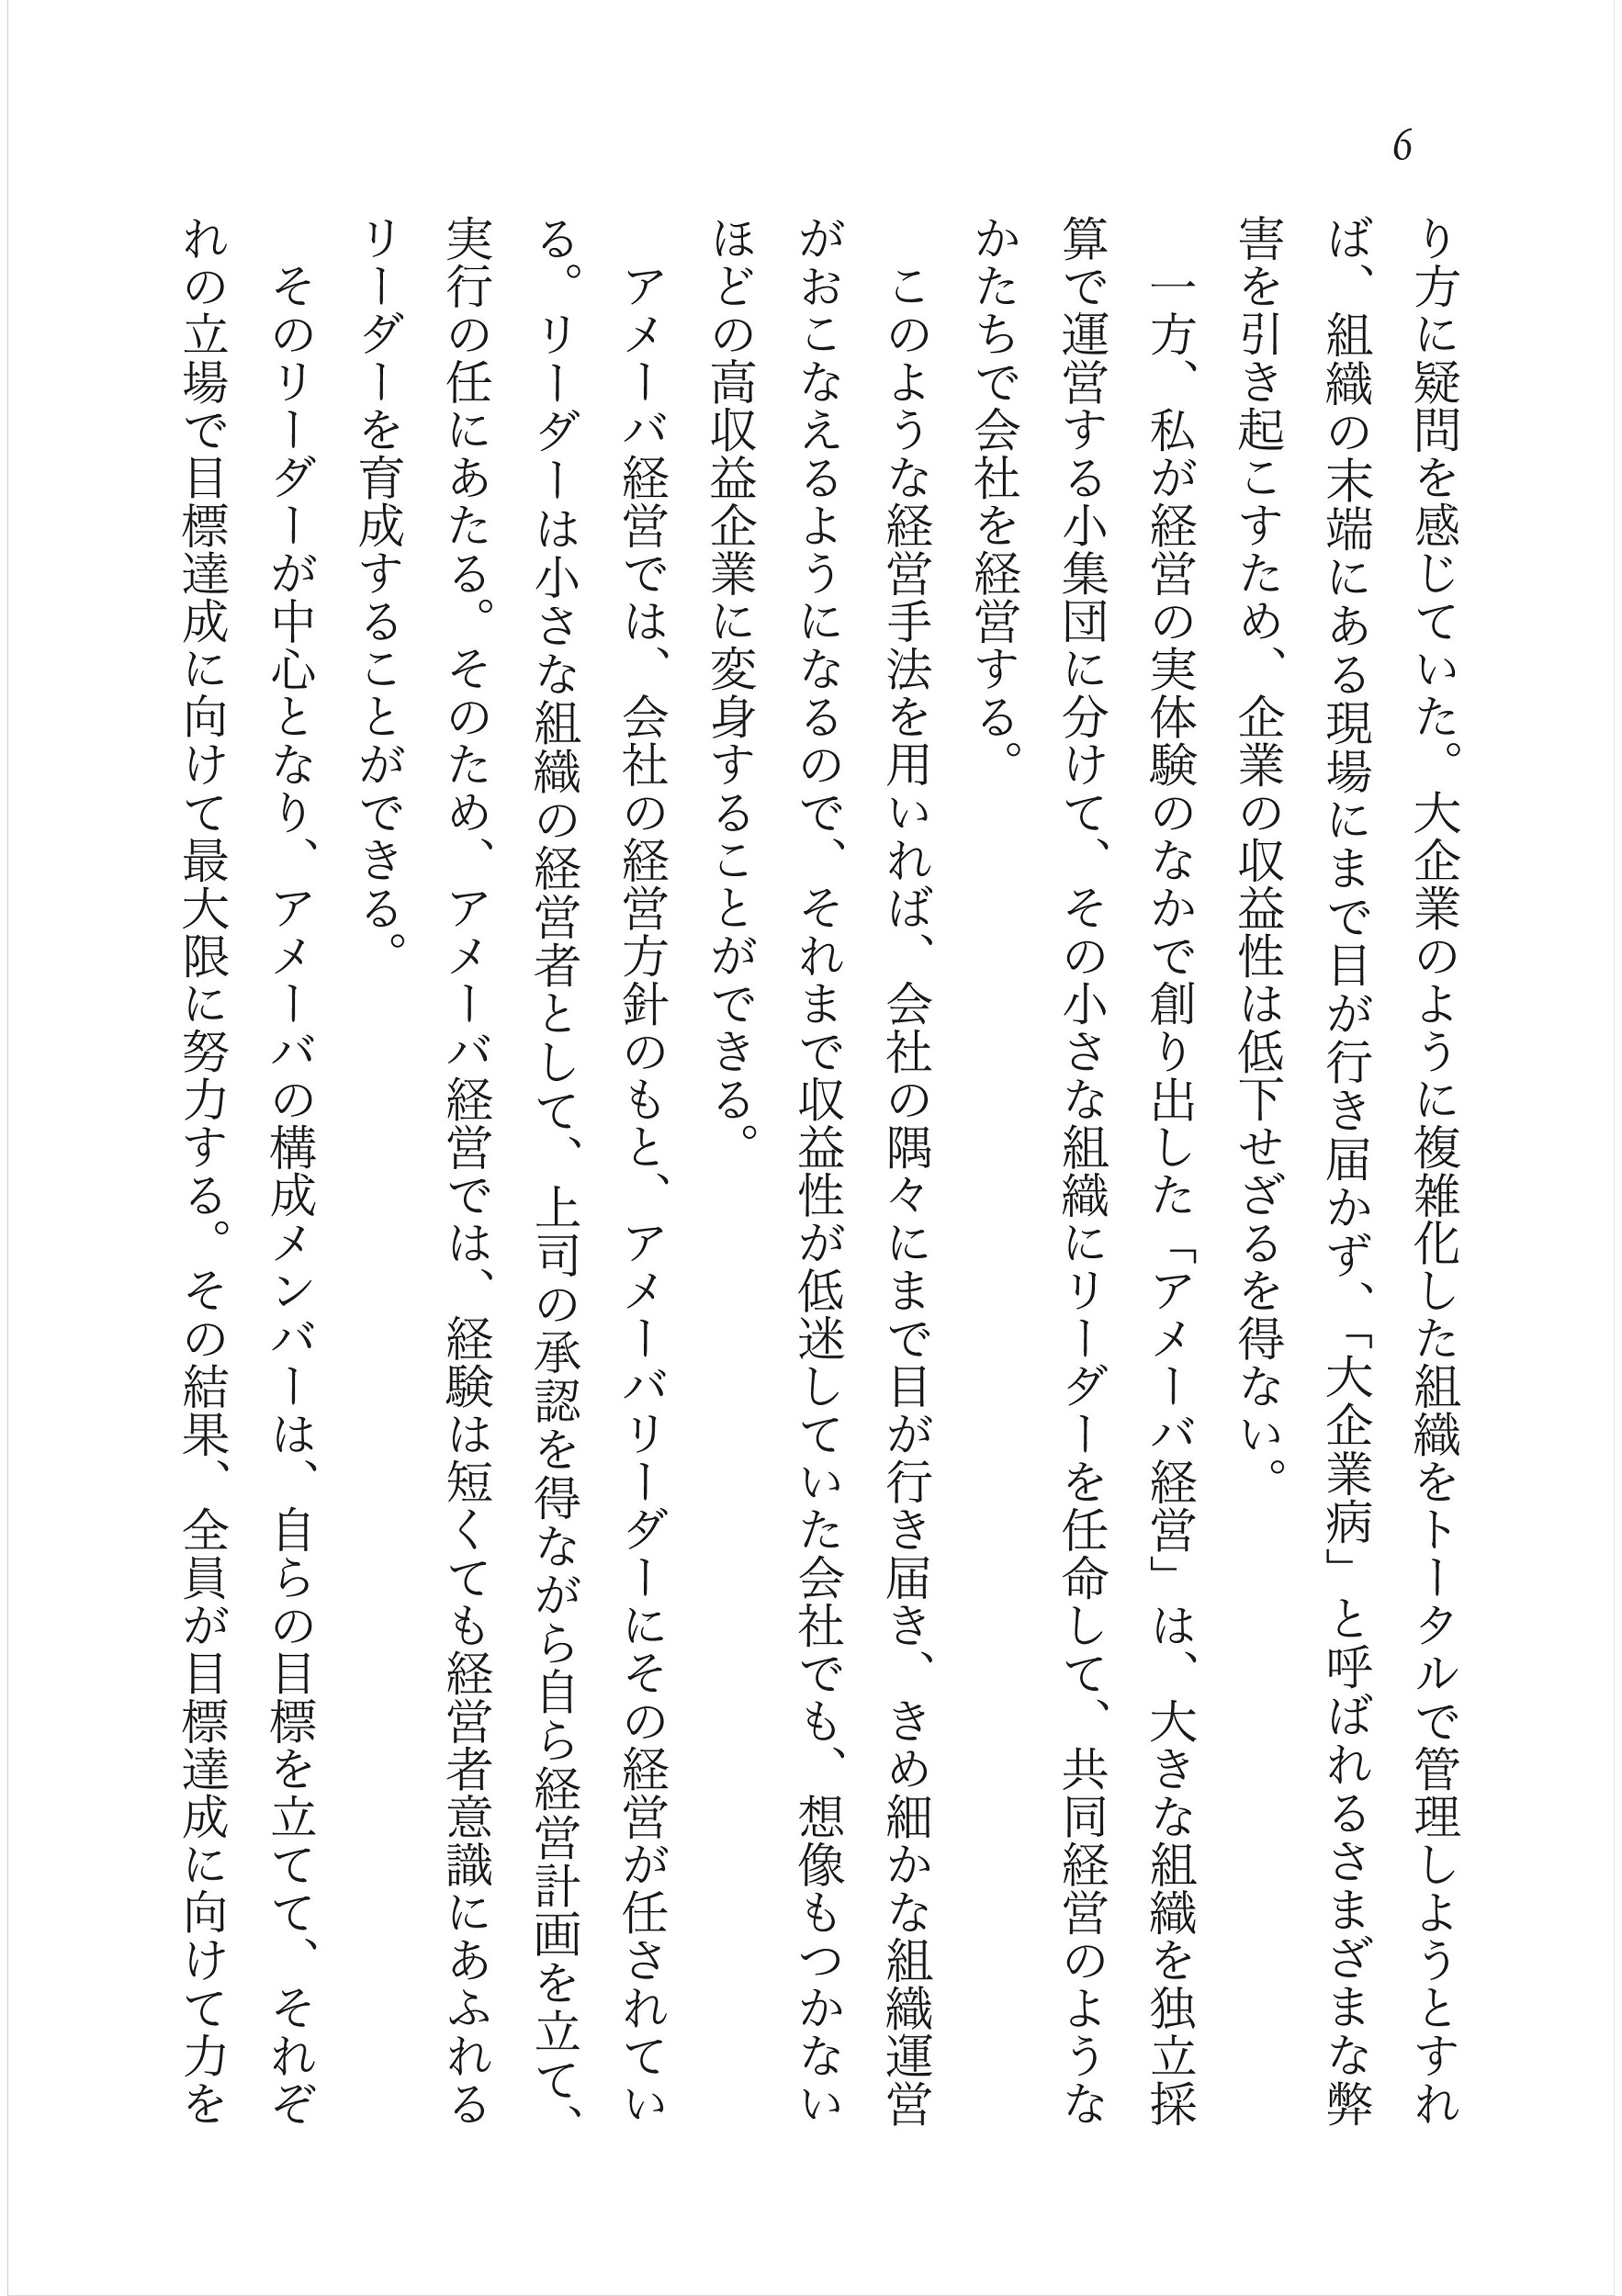 6
り方に疑問を感じていた。大企業のように複雑化した組織をトータルで管理しようとすれ
ば、組織の末端にある現場にまで目が行き届かず、「大企業病」と呼ばれるさまざまな弊
害を引き起こすため、企業の収益性は低下せざるを得ない。
　一方、私が経営の実体験のなかで創り出した「アメーバ経営」は、大きな組織を独立採
算で運営する小集団に分けて、その小さな組織にリーダーを任命して、共同経営のような
かたちで会社を経営する。
　このような経営手法を用いれば、会社の隅々にまで目が行き届き、きめ細かな組織運営
がおこなえるようになるので、それまで収益性が低迷していた会社でも、想像もつかない
ほどの高収益企業に変身することができる。
　アメーバ経営では、会社の経営方針のもと、アメーバリーダーにその経営が任されてい
る。リーダーは小さな組織の経営者として、上司の承認を得ながら自ら経営計画を立て、
実行の任にあたる。そのため、アメーバ経営では、経験は短くても経営者意識にあふれる
リーダーを育成することができる。
　そのリーダーが中心となり、アメーバの構成メンバーは、自らの目標を立てて、それぞ
れの立場で目標達成に向けて最大限に努力する。その結果、全員が目標達成に向けて力を